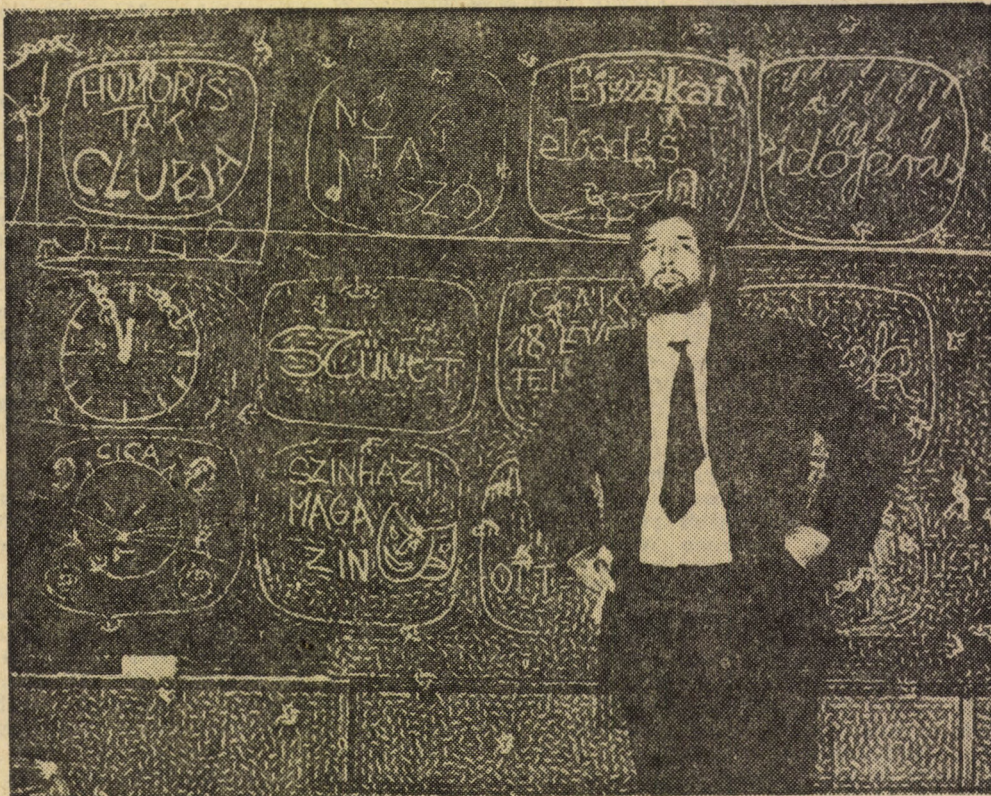 HUMORIS
TAK
CLUBJA
NÓ
TA
SZÓ
Éjszakai
előadás
időjárás
SZÜNET
CSAK
18 ÉV
FEL
CICA
SZINHAZI
MAGA
ZIN
OTT